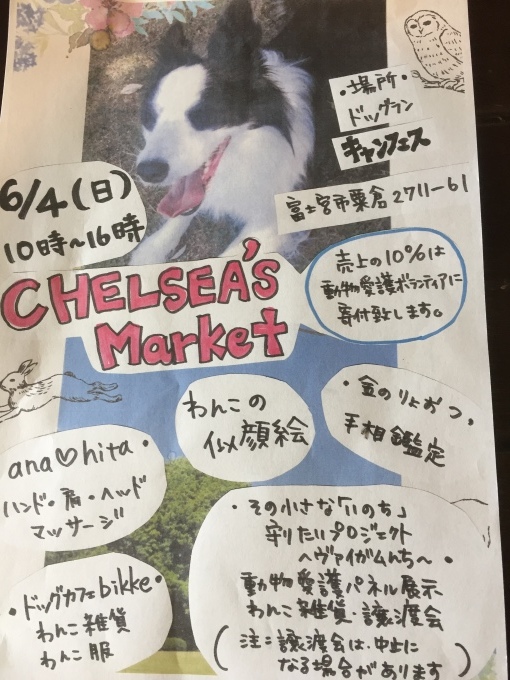 ・場所・
ドッグラン
キャンフェス
富士宮市粟倉2711-61
6/4(日)
10時～16時
CHELSEA'S
Market
売上の10%は
動物愛護ボランティアに
寄付致します。
わんこの
似顔絵
・金のりょおつ・
手相鑑定
ana♡hita・
ハンド・肩・ヘッド
マッサージ
・ドッグカフェbikke・
わんこ雑貨
わんこ服
・その小さな「いのち」
守りたいプロジェクト
へヴァイガムんち～・
動物愛護パネル展示
わんこ雑貨・譲渡会
(注:譲渡会は中止に
なる場合があります)